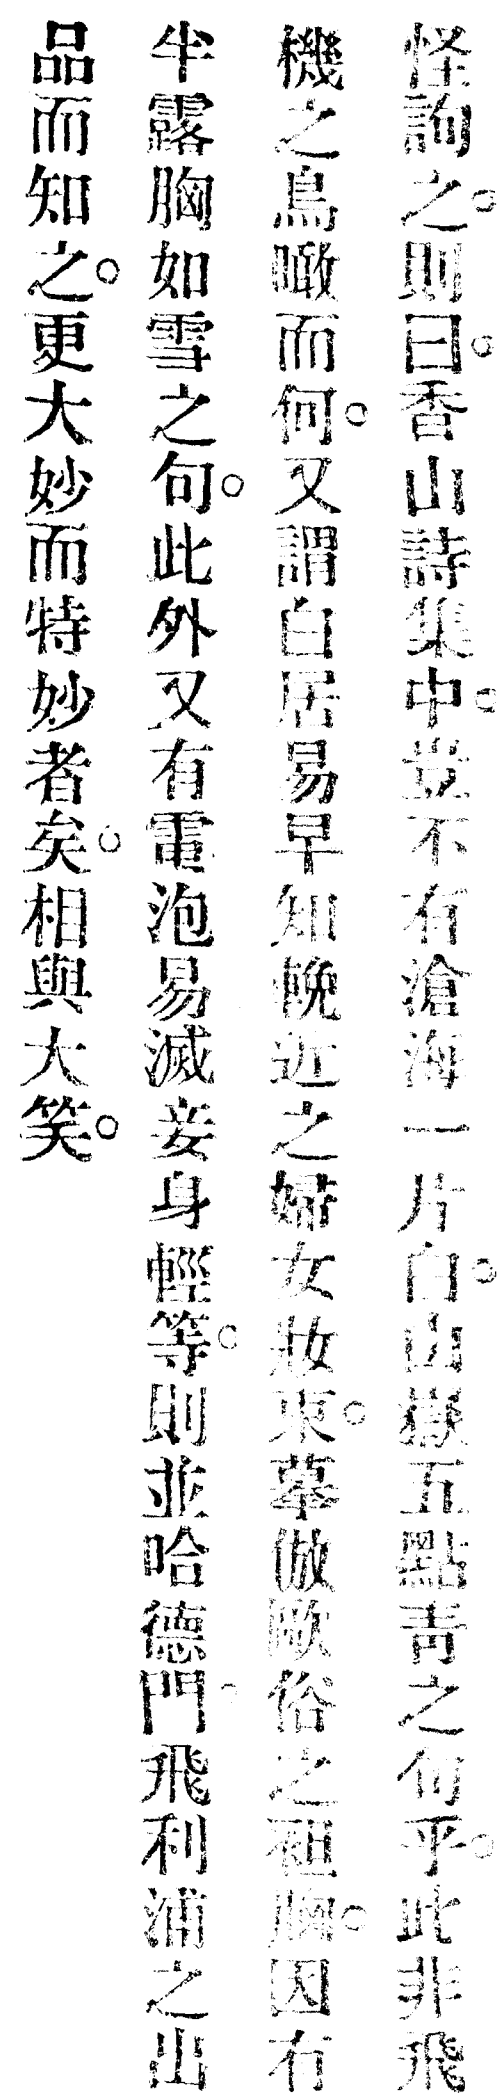 怪詢之。則曰。香山詩集中。豈不有滄海一片白。山嶽五點靑之句乎。此非飛
機之鳥瞰而何。又謂白居易早知輓近之婦女妝束。摹倣歐俗之袒胸。因有
半露胸如雪之句。此外又有電泡易滅妾身輕等。則並哈德門。飛利浦之出
品而知之。更大妙而特妙者矣。相與大笑。